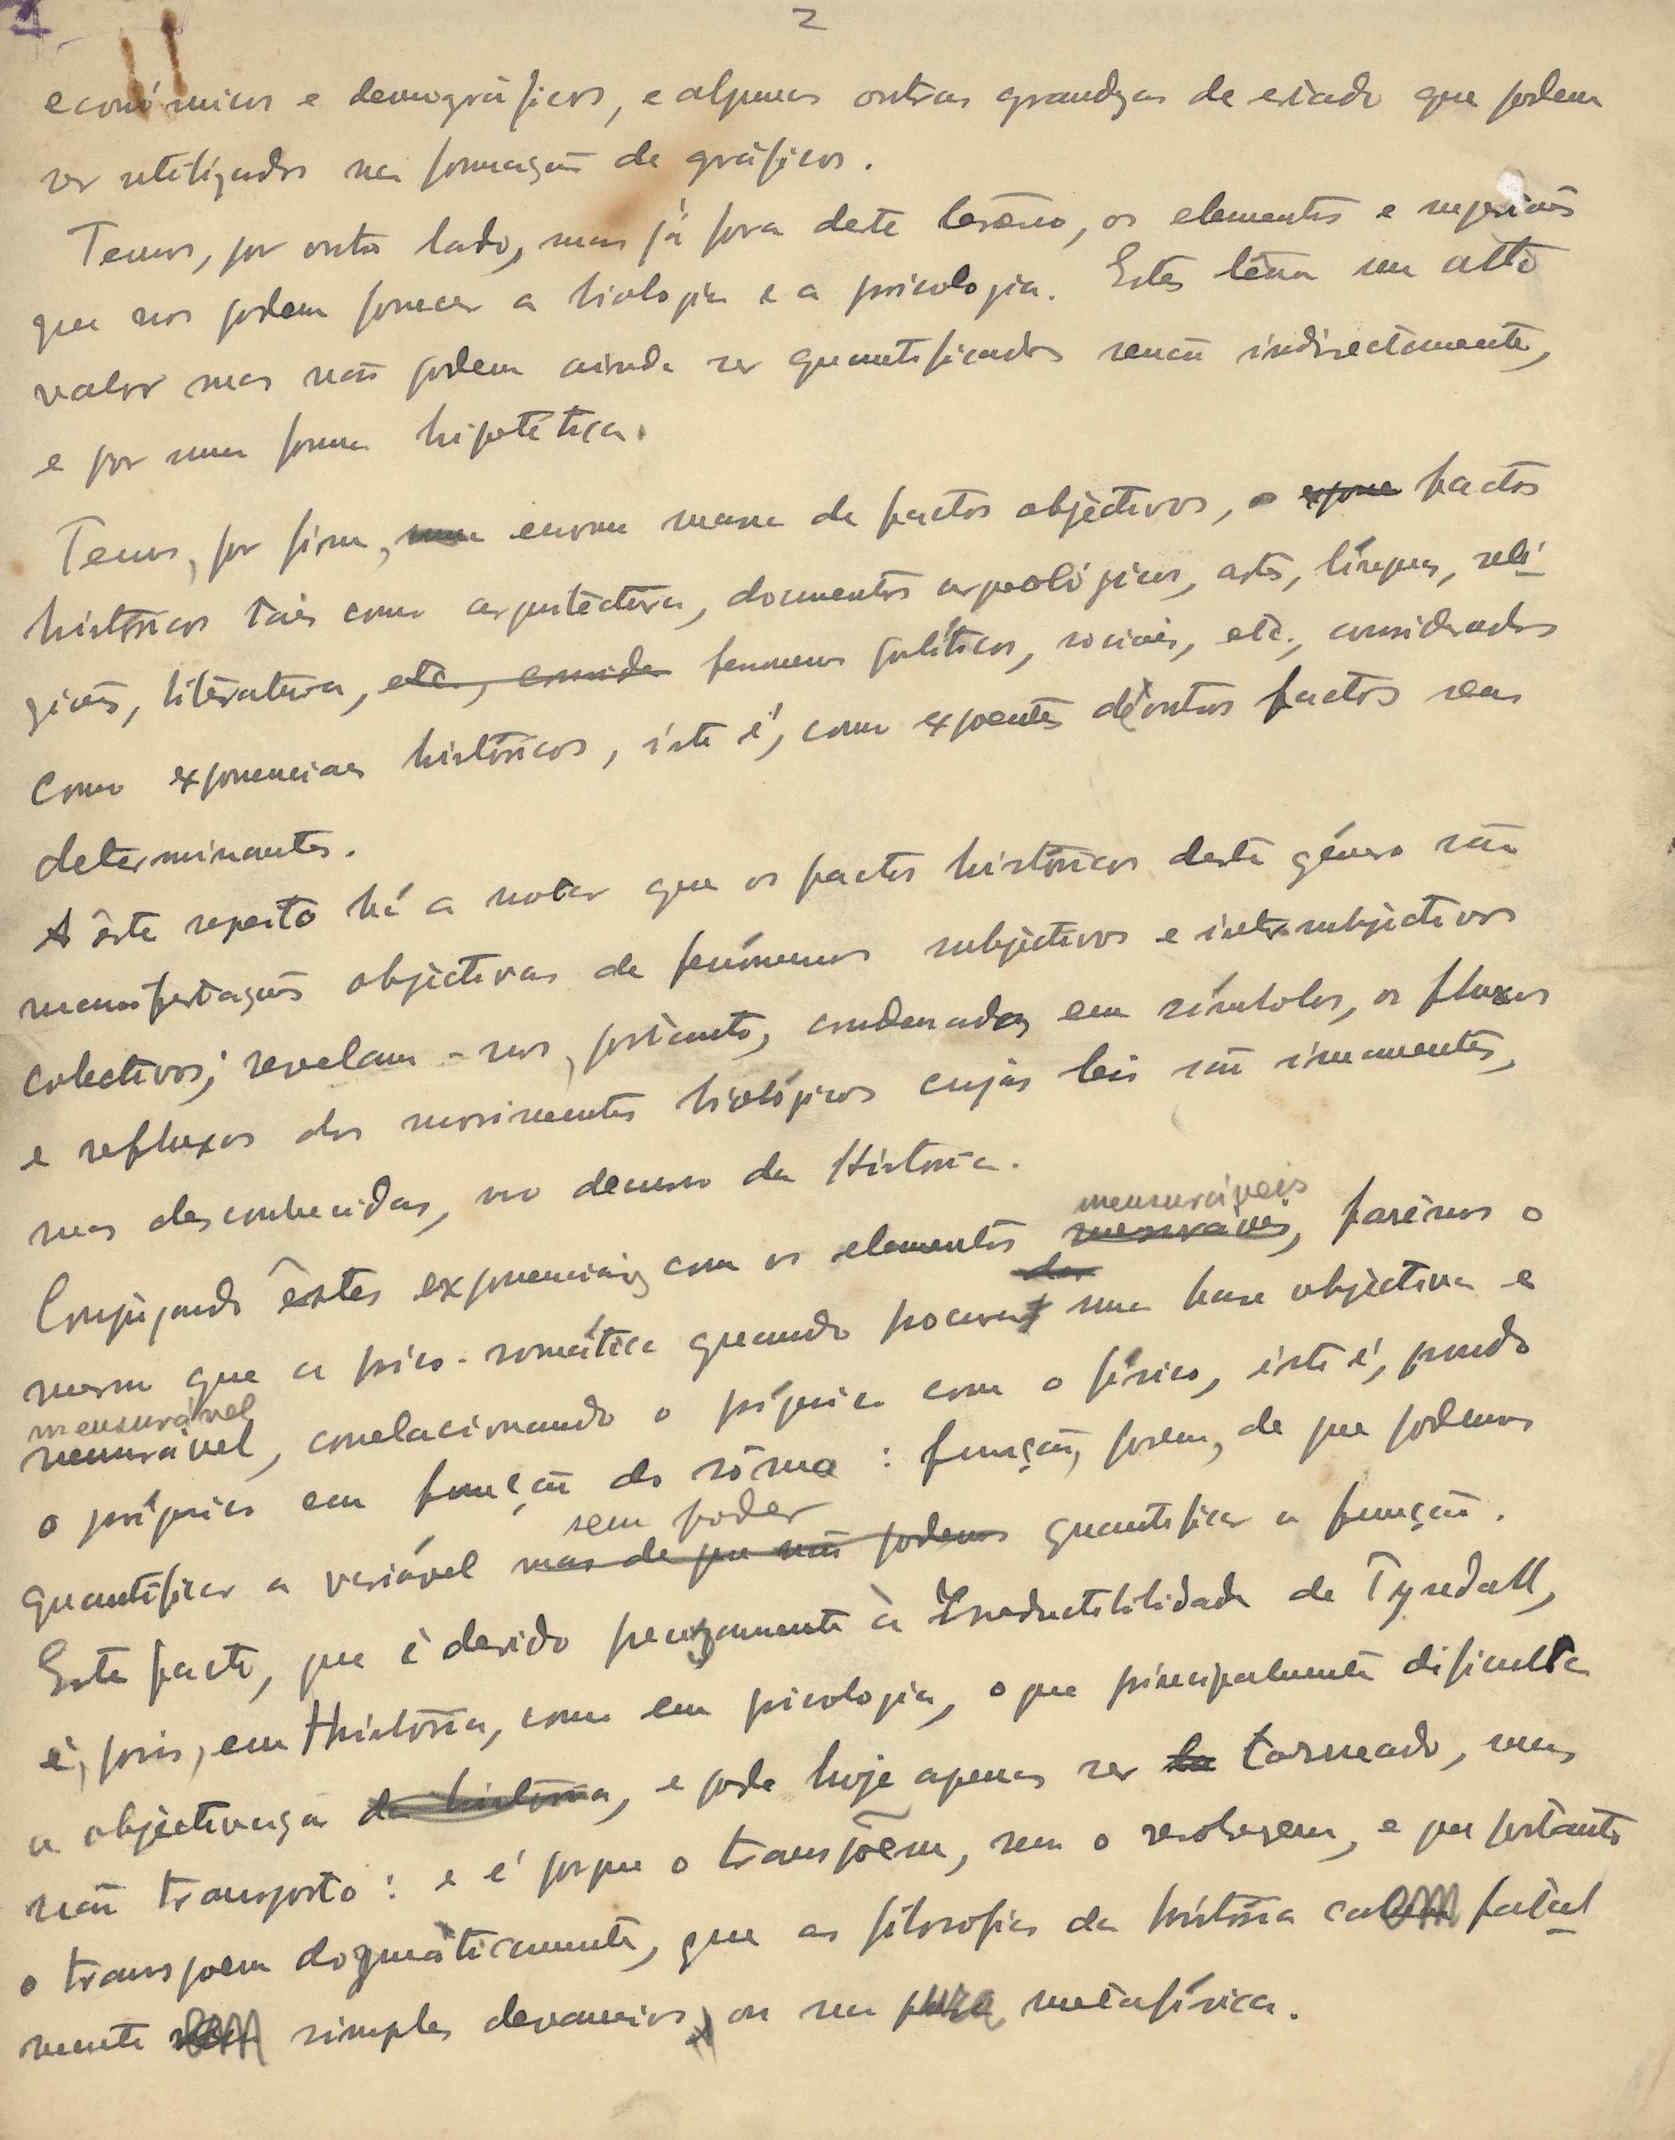 2
económicos e demográficos, e algumas outras grandezas de estado que podem
ser utilizados na formação de gráficos.
Temos, por outro lado, mas já fora deste terreno, os elementos e sugestões
que nos podem fornecer a biologia e a psicologia. Estes têem um alto
valor mas não podem ainda ser quantificados senão indirectamente,
e por uma forma hipotética.
Temos, por fim, uma enorme massa de factos objectivos, o expoe factos
históricos tais como arquitectura, documentos arqueológicos, arte, línguas, reli-
giões, literatura, etc., consider fenomenos políticos, sociais, etc., considerados
como exponenciais históricos, isto é, como expoentes de outros factos seus
determinantes.
A êste respeito há a notar que os factos históricos deste género são
manifestações objectivas de fenómenos subjectivos e inter-subjectivos
colectivos; revelam-nos, portanto, condensados em símbolos, os fluxos
e refluxos dos movimentos biológicos cujas leis são imanentes,
mas desconhecidas, no decurso da História.
mensuráveis
Conjugando êstes exponenciais com os elementos mensuráveis, farêmos o
dos
mesmo que a psico-somática quando procura uma base objectiva e
mensurável
mensurável, correlacionando o psíquico com o físico, isto é, pondo
o psíquico em função do sôma: função, porem, de que podemos
sem poder
quantificar a variável mas de que não podemos quantificar a função.
Este facto, que é devido precisamente à Irreductibilidade de Tyndall,
é, pois, em História, como em psicologia, o que principalmente dificulta
a objectivação da história, e pode hoje apenas ser to torneado, mas
não transposto: e é porque o transpõem, sem o resolverem, e que portanto
o transpoem dogmáticamente, que as filosofias da história caem fatal-
mente em simples devaneios, ou na pura metafísica.